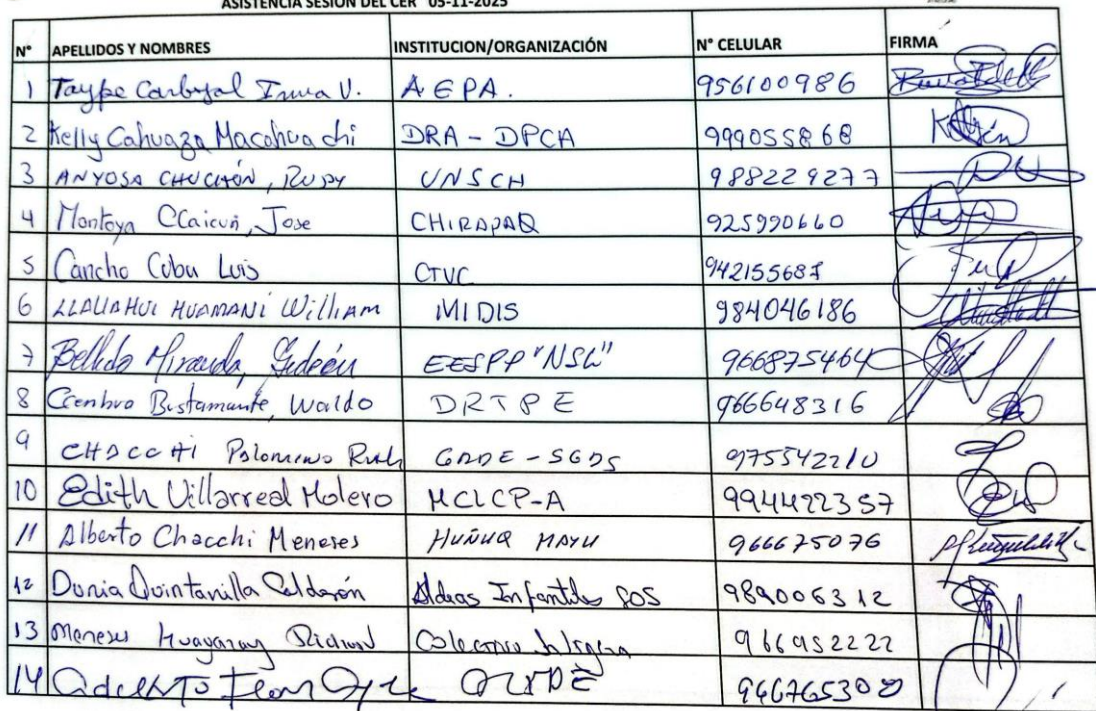 ASISTENCIA SESIÓN DEL CER 05-11-2025
N° APELLIDOS Y NOMBRES INSTITUCION/ORGANIZACIÓN N° CELULAR FIRMA
1 Taype Carbajal Irma V. AEPA. 956100986
2 Kelly Cahuaza Macahuachi DRA - DPCA 999055868
3 ANYOSA CHUCHÓN, RUDY UNSCH 988229277
4 Montoya Ccaicuri, Jose CHIRAPAQ 925990660
5 Cancho Cobu Luis CTVC 942155687
6 LLALLAHUI HUAMANI William MIDIS 984046186
7 Bellido Miranda, Gedeón EESPP "NSL" 966875464
8 Bustamante, Waldo DRTPE 966648316
9 CHACCHI Palomino Ruth GRDE - SGDS 975542210
10 Edith Villarreal Molero MCLCP-A 994422357
11 Alberto Chacchi Meneses HUÑUQ MAYU 966675076
12 Dunia Quintanilla Calderón Aldeas Infantiles SOS 989006312
13 Meneses Huayanay Richard Colectivo 966952222
14